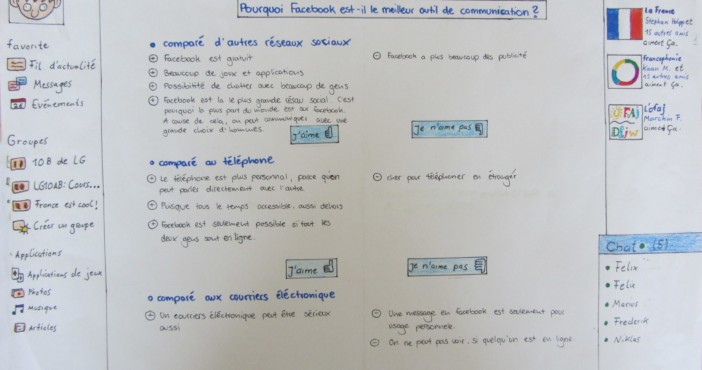 Pourquoi Facebook est-il le meilleur outil de communication?
favorite
Fil d'actualité
Messages
Evénements
Groupes
10B de LG
LG10AB: Cours...
France est cool!
Créer un groupe
Applications
Applications de jeux
Photos
Musique
Articles
comparé d'autres réseaux sociaux
Facebook est gratuit
Beaucoup de jeux et applications
Possibilité de chatter avec beaucoup de gens
Facebook est la le plus grande résau social. C'est
pourquoi la plus part du monde est sur facebook.
A cause de cela, on peut communiquer avec une
grande choix d'hommes.
J'aime
Facebook a plus beaucoup des publicité
Je n'aime pas
comparé au téléphone
Le téléphone est plus personnal, parce qu'on
peut parler directement avec l'autre.
Puisque tous le temps accessible, aussi dehors
Facebook est seulement possible si tout les
deux gens sont en ligne.
J'aime
cher pour téléphoner en étranger
Je n'aime pas
comparé aux courriers éléctronique
Un courriers éléctronique peut être sérieux
aussi
Une message en Facebook est seulement pour
usage personnele.
On ne peut pas voir, si quelqu'un est en ligne
La France
et
15 autres amis
aiment ça.
Francophonie
et
15 autres amis
aiment ça.
Lofaj
F.
aiment ça.
Chat (5)
Felix
Felix
Marius
Frederik
Niklas